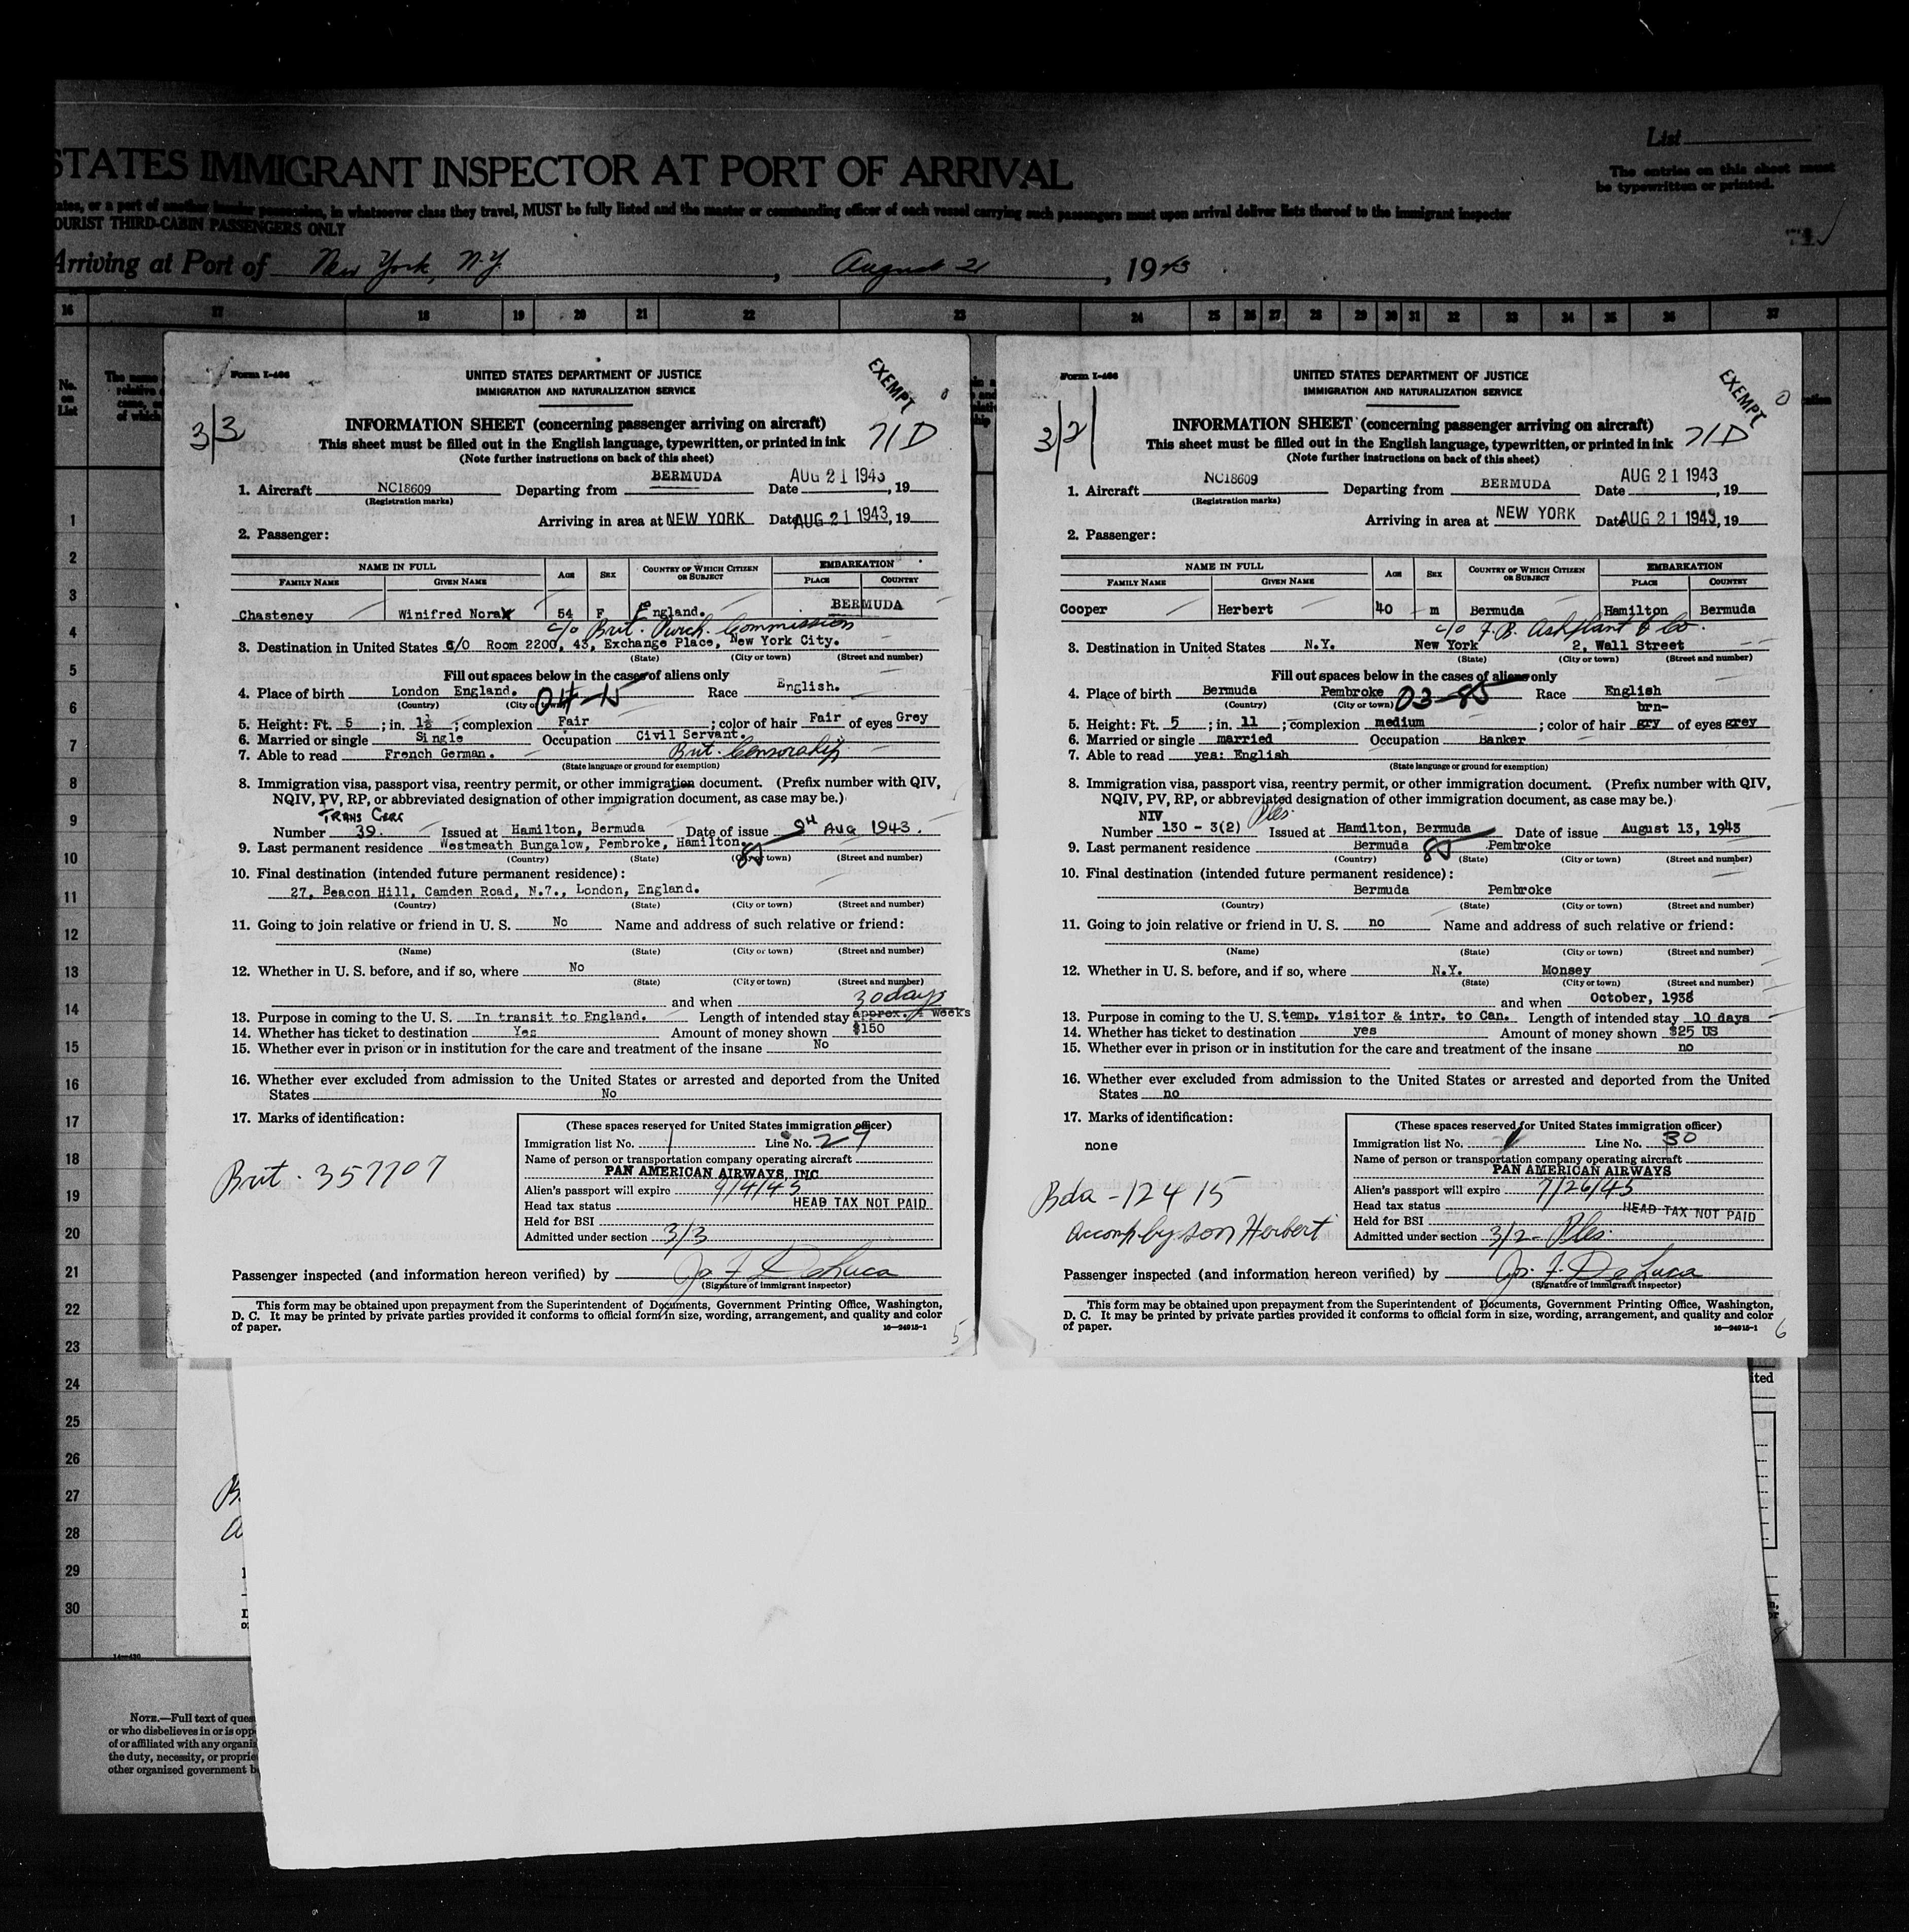 STATES IMMIGRANT INSPECTOR AT PORT OF ARRIVAL
List
The entries on this sheet must
be typewritten or printed.
in whatsoever class they travel, MUST be fully listed and the master or commanding officer of each vessel carrying such passengers must upon arrival deliver lists thereof to the immigrant inspector
TOURIST THIRD-CABIN PASSENGERS ONLY
Arriving at Port of New York, N.Y. , August 21 , 1943
16 17 18 19 20 21 22 23 24 25 26 27 28 29 30 31 32 33 34 35 36 37
No.
on
List
1
2
3
4
5
6
7
8
9
10
11
12
13
14
15
16
17
18
19
20
21
22
23
24
25
26
27
28
29
30
Form I-466
UNITED STATES DEPARTMENT OF JUSTICE
IMMIGRATION AND NATURALIZATION SERVICE
EXEMPT
3/3
INFORMATION SHEET (concerning passenger arriving on aircraft)
71D
This sheet must be filled out in the English language, typewritten, or printed in ink
(Note further instructions on back of this sheet)
1. Aircraft NC18609 Departing from BERMUDA Date AUG 21 1943, 19
(Registration marks)
Arriving in area at NEW YORK Date AUG 21 1943, 19
2. Passenger:
NAME IN FULL AGE SEX COUNTRY OF WHICH CITIZEN OR SUBJECT EMBARKATION
FAMILY NAME GIVEN NAME PLACE COUNTRY
Chasteney Winifred Nora 54 F England. BERMUDA
c/o Brit. Purch. Commission
3. Destination in United States c/o Room 2200, 43, Exchange Place, New York City.
(State) (City or town) (Street and number)
Fill out spaces below in the cases of aliens only
4. Place of birth London England. 04-15 Race English.
(Country) (City or town)
5. Height: Ft. 5 ; in. 1½ ; complexion Fair ; color of hair Fair of eyes Grey
6. Married or single Single Occupation Civil Servant.
7. Able to read French German. Brit. Censorship
(State language or ground for exemption)
8. Immigration visa, passport visa, reentry permit, or other immigration document. (Prefix number with QIV,
NQIV, PV, RP, or abbreviated designation of other immigration document, as case may be.)
TRANS CERT
Number 39. Issued at Hamilton, Bermuda Date of issue 9th Aug 1943.
9. Last permanent residence Westmeath Bungalow, Pembroke, Hamilton. 85
(Country) (State) (City or town) (Street and number)
10. Final destination (intended future permanent residence):
27, Beacon Hill, Camden Road, N.7., London, England.
(Country) (State) (City or town) (Street and number)
11. Going to join relative or friend in U. S. No Name and address of such relative or friend:
(Name) (State) (City or town) (Street and number)
12. Whether in U. S. before, and if so, where No
(State) (City or town) (Street and number)
and when 30 days
13. Purpose in coming to the U. S. In transit to England. Length of intended stay approx. weeks
14. Whether has ticket to destination Yes Amount of money shown $150
15. Whether ever in prison or in institution for the care and treatment of the insane No
16. Whether ever excluded from admission to the United States or arrested and deported from the United
States No
17. Marks of identification:
Brit. 357707
(These spaces reserved for United States immigration officer)
Immigration list No. 1 Line No. 29
Name of person or transportation company operating aircraft
PAN AMERICAN AIRWAYS, INC
Alien's passport will expire 9/4/45
Head tax status HEAD TAX NOT PAID
Held for BSI
Admitted under section 3/3
Passenger inspected (and information hereon verified) by Jos. F. DeLuca
(Signature of immigrant inspector)
This form may be obtained upon prepayment from the Superintendent of Documents, Government Printing Office, Washington,
D. C. It may be printed by private parties provided it conforms to official form in size, wording, arrangement, and quality and color
of paper. 16—24915-1
5
Form I-466
UNITED STATES DEPARTMENT OF JUSTICE
IMMIGRATION AND NATURALIZATION SERVICE
EXEMPT
3/2
INFORMATION SHEET (concerning passenger arriving on aircraft)
71D
This sheet must be filled out in the English language, typewritten, or printed in ink
(Note further instructions on back of this sheet)
1. Aircraft NC18609 Departing from BERMUDA Date AUG 21 1943, 19
(Registration marks)
Arriving in area at NEW YORK Date AUG 21 1943, 19
2. Passenger:
NAME IN FULL AGE SEX COUNTRY OF WHICH CITIZEN OR SUBJECT EMBARKATION
FAMILY NAME GIVEN NAME PLACE COUNTRY
Cooper Herbert 40 m Bermuda Hamilton Bermuda
c/o F. B. Ashplant & Co.
3. Destination in United States N.Y. New York 2, Wall Street
(State) (City or town) (Street and number)
Fill out spaces below in the cases of aliens only
4. Place of birth Bermuda Pembroke 03-85 Race English
(Country) (City or town)
brn-
5. Height: Ft. 5 ; in. 11 ; complexion medium ; color of hair gry of eyes grey
6. Married or single married Occupation Banker
7. Able to read yes: English
(State language or ground for exemption)
8. Immigration visa, passport visa, reentry permit, or other immigration document. (Prefix number with QIV,
NQIV, PV, RP, or abbreviated designation of other immigration document, as case may be.)
NIV
Number 130 - 3(2) Issued at Hamilton, Bermuda Date of issue August 13, 1943
9. Last permanent residence Bermuda 85 Pembroke
(Country) (State) (City or town) (Street and number)
10. Final destination (intended future permanent residence):
Bermuda Pembroke
(Country) (State) (City or town) (Street and number)
11. Going to join relative or friend in U. S. no Name and address of such relative or friend:
(Name) (State) (City or town) (Street and number)
12. Whether in U. S. before, and if so, where N.Y. Monsey
(State) (City or town) (Street and number)
and when October, 1938
13. Purpose in coming to the U. S. temp. visitor & intr. to Can. Length of intended stay 10 days
14. Whether has ticket to destination yes Amount of money shown $25 US
15. Whether ever in prison or in institution for the care and treatment of the insane no
16. Whether ever excluded from admission to the United States or arrested and deported from the United
States no
17. Marks of identification:
none
Bda - 12415
Accomp by son Herbert
(These spaces reserved for United States immigration officer)
Immigration list No. 1 Line No. 30
Name of person or transportation company operating aircraft
PAN AMERICAN AIRWAYS
Alien's passport will expire 7/26/45
Head tax status HEAD TAX NOT PAID
Held for BSI
Admitted under section 3/2 -
Passenger inspected (and information hereon verified) by Jos. F. DeLuca
(Signature of immigrant inspector)
This form may be obtained upon prepayment from the Superintendent of Documents, Government Printing Office, Washington,
D. C. It may be printed by private parties provided it conforms to official form in size, wording, arrangement, and quality and color
of paper. 16—24915-1
6
NOTE.—Full text of
or who disbelieves in or is
of or affiliated with any
the duty, necessity, or
other organized government